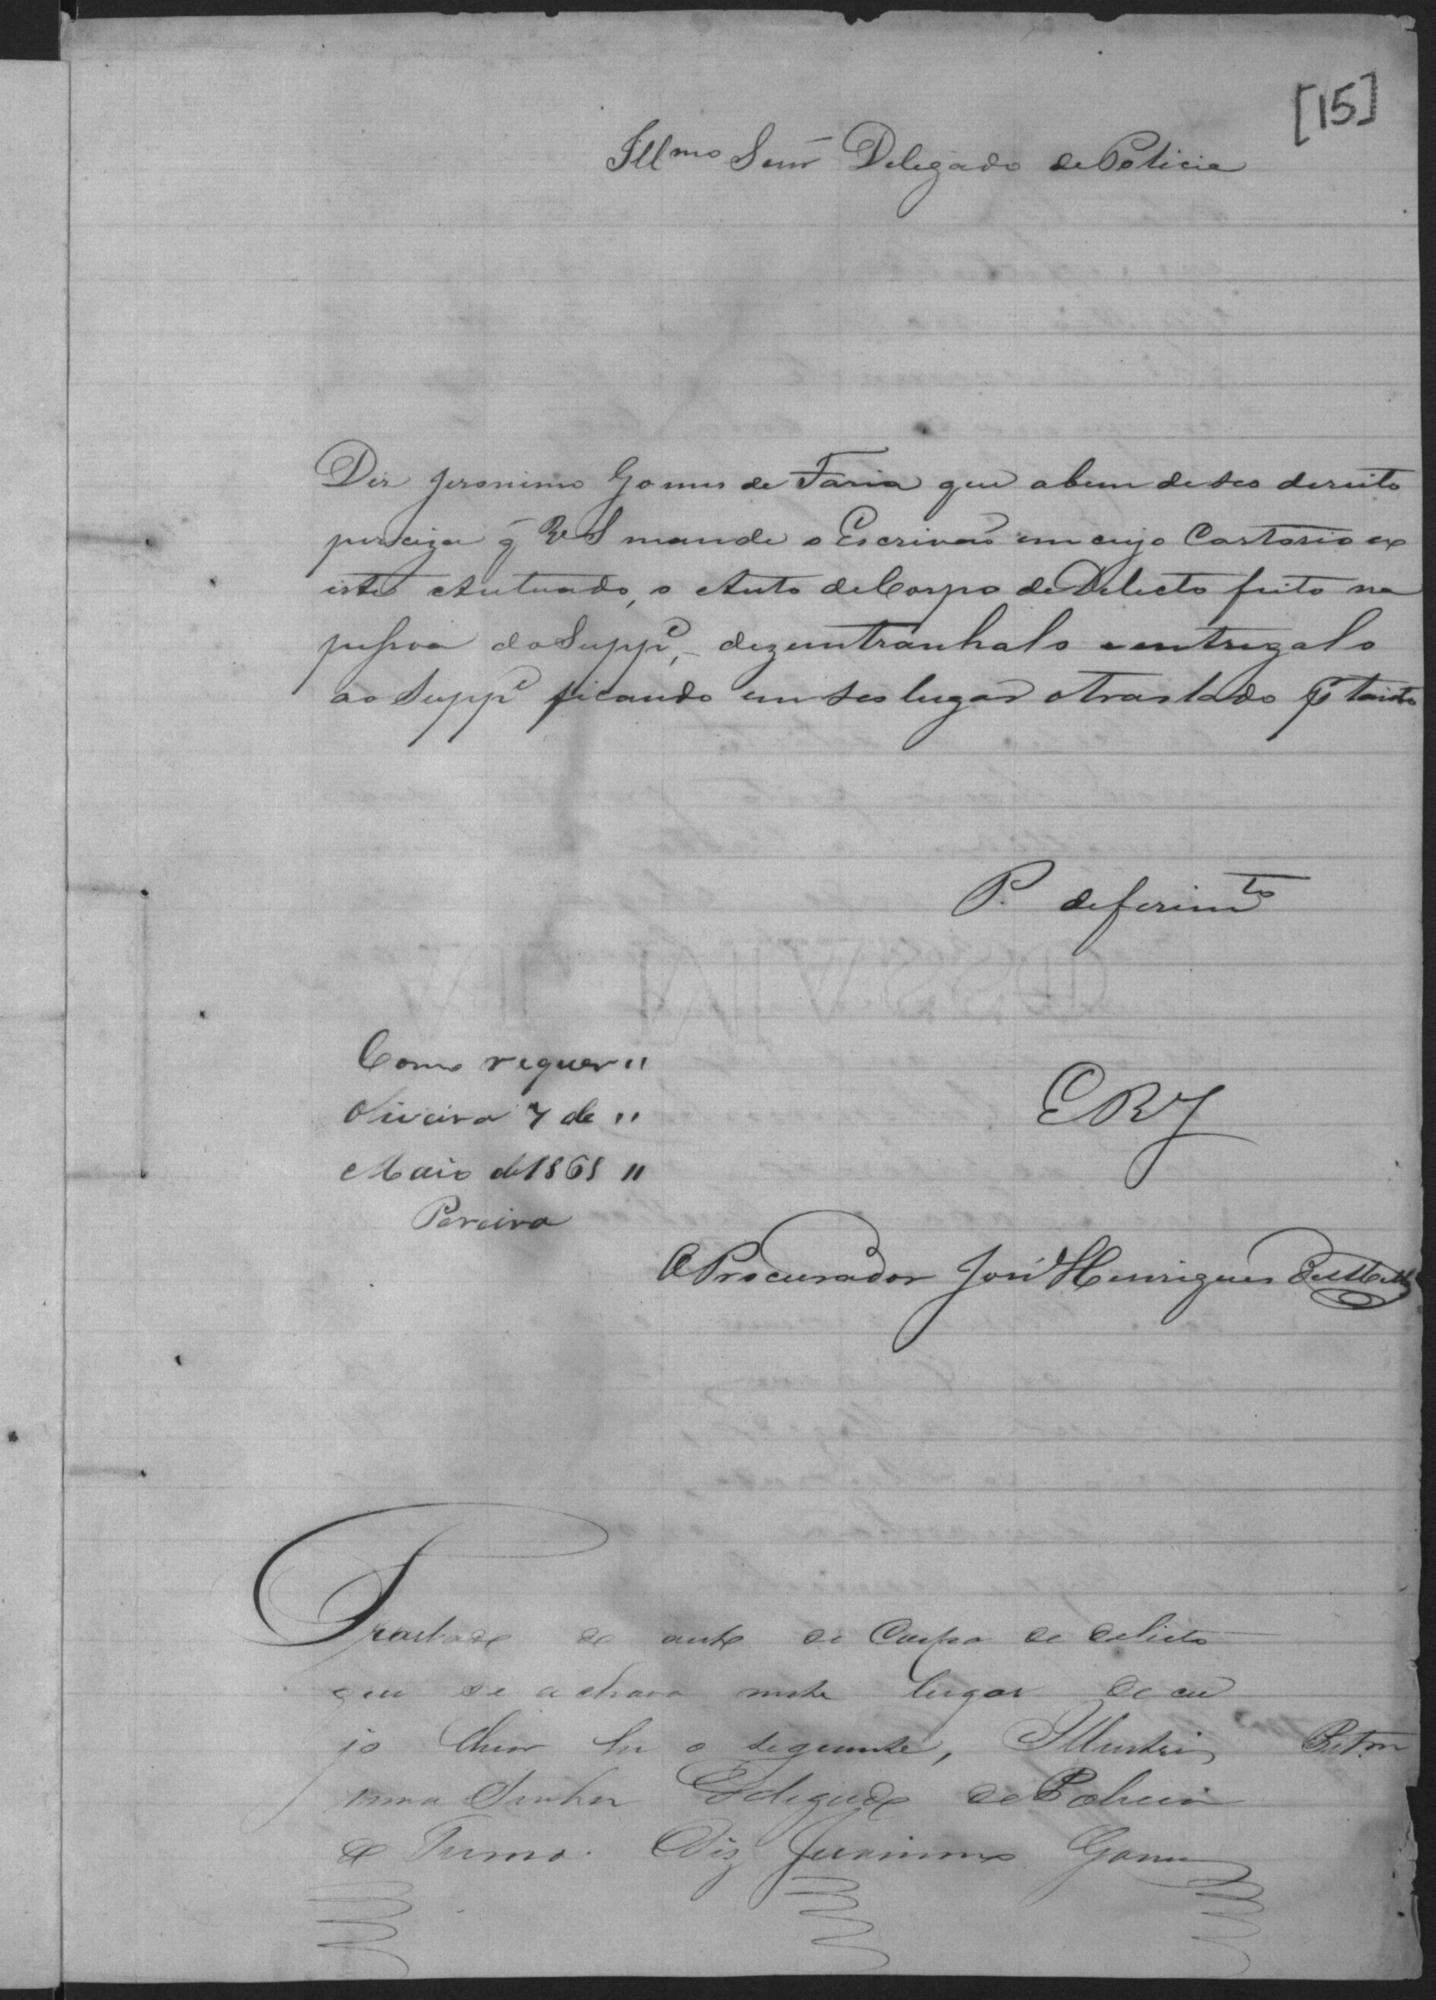 [15]
Illmo Senr Delegado de Policia
Diz Jeronimo Gomes de Faria que abem de seo dereito
perciza q̃ V S mande o Escrivaõ em cujo Cartorio ex
iste Autuado, o Auto de Corpo de Delecto feito na
pessoa do Suppe, dezentranhalo e entregalo
ao Suppe ficando em seo lugar o traslado P tanto
P. deferimto
Como requer "
Oliveira 7 de "
Maio de 1868 "
Pereira
E R J
O Procurador José Henriques
Traslado do auto de Corpo de delicto
que se achava neste lugar de cu
jo theor he o seguinte, Illustris Petm
simo Senhor Delegado de Policia
do Termo. Diz Jeronimo Gomes